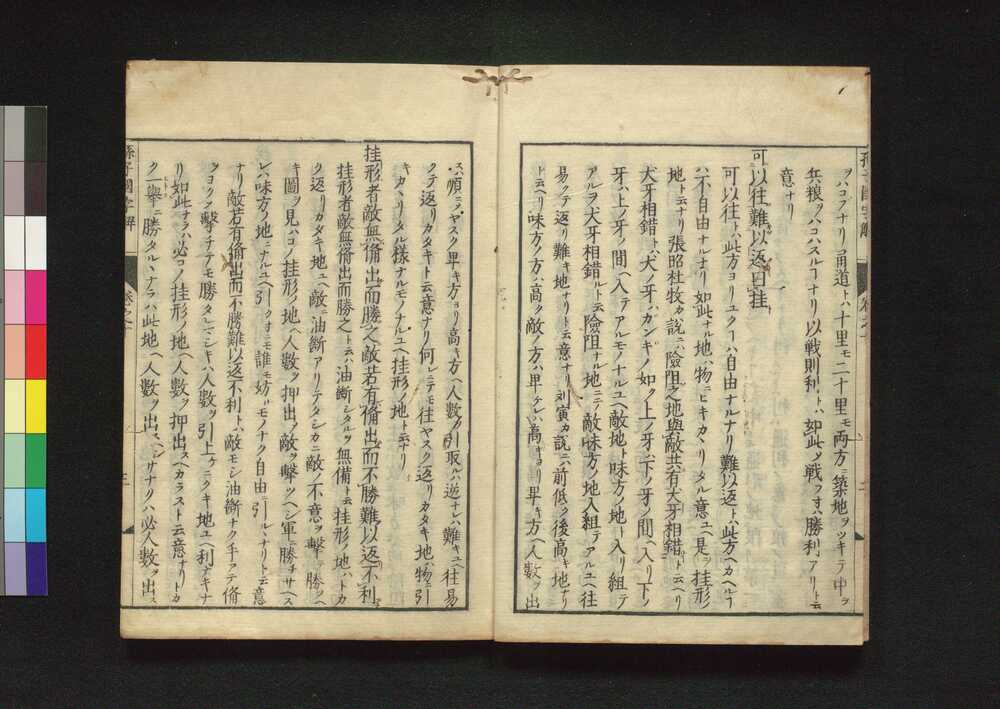 ヲハコブナリ甬道トハ十里モ二十里モ両方ニ築地ヲツキテ中ヲ
兵粮ヲハコハスルコナリ以戦則利トハ如此ノ戦フ寸ハ勝利アリト云
意ナリ
可以往難以返曰挂
可以往トハ此方ヨリユクコハ自由ナルナリ難以返トハ此方ヘカヘルコ
ハ不自由ナルナリ如此ナル地ハ物ニヒキカヽリタル意ユヘ是ヲ挂形ノ
地ト云ナリ張昭杜牧カ説ニハ險阻之地與敵共有犬牙相錯ト云ヘリ
犬牙相錯トハ犬ノ牙ハガンギノ如ク上ノ牙ハ下ノ牙ノ間ヘ入リ下ノ
牙ハ上ノ牙ノ間ヘ入テアルモノナルユヘ敵地ト味方ノ地ト入リ組テ
アルヲ犬牙相錯ルト云險阻ナル地ニテ敵味方ノ地入組テアルユヘ往
易クテ返リ難キ地ナリト云意ナリ刘寅カ説ニハ前低ク後高キ地ナリ
ト云ヘリ味方ノ方ハ高ク敵ノ方ハ卑ケレハ高キヨリ卑キ方ヘ人數ヲ出
スハ順ニテヤスク卑キ方ヨリ高キ方ヘ人數ヲ引取ルハ逆ナレハ難キユヘ往易
クテ返リカタキト云意ナリ何レニテモ往ヤスク返リカタキ地ハ物ニ引
キカヽリタル様ナルモノナルユヘ挂形ノ地ト云ナリ
挂形者敵無備出而勝之敵若有備出而不勝難以返不利
挂形者敵無備出而勝之ト云ハ油断シタルヲ無備ト云挂形ノ地ハトカ
ク返リカタキ地ユヘ敵ニ油断アリテタシカニ敵ノ不意ヲ撃テ勝ツヘ
キ圖ヲ見ハコノ挂形ノ地ヘ人數ヲ押出シ敵ヲ撃ツヘシ軍ニ勝チサヘス
レハ味方ノ地ニナルユヘ引クニモ誰モ妨ルモノナク自由ニ引ルヽナリト云意
ナリ敵若有備出而不勝難以返不利トハ敵モシ油断ナク手アテ備
ヲヨクシテ撃チテモ勝タレマシキハ人數ヲ引上ケニクキ地ユヘ利ナキナ
リ如此ナラハ必コノ挂形ノ地ヘ人數ヲ押出スヘカラスト云意ナリトカ
ク一舉ニ勝タルヽナラハ此地ヘ人數ヲ出スヘシサナクハ必人數ヲ出ス